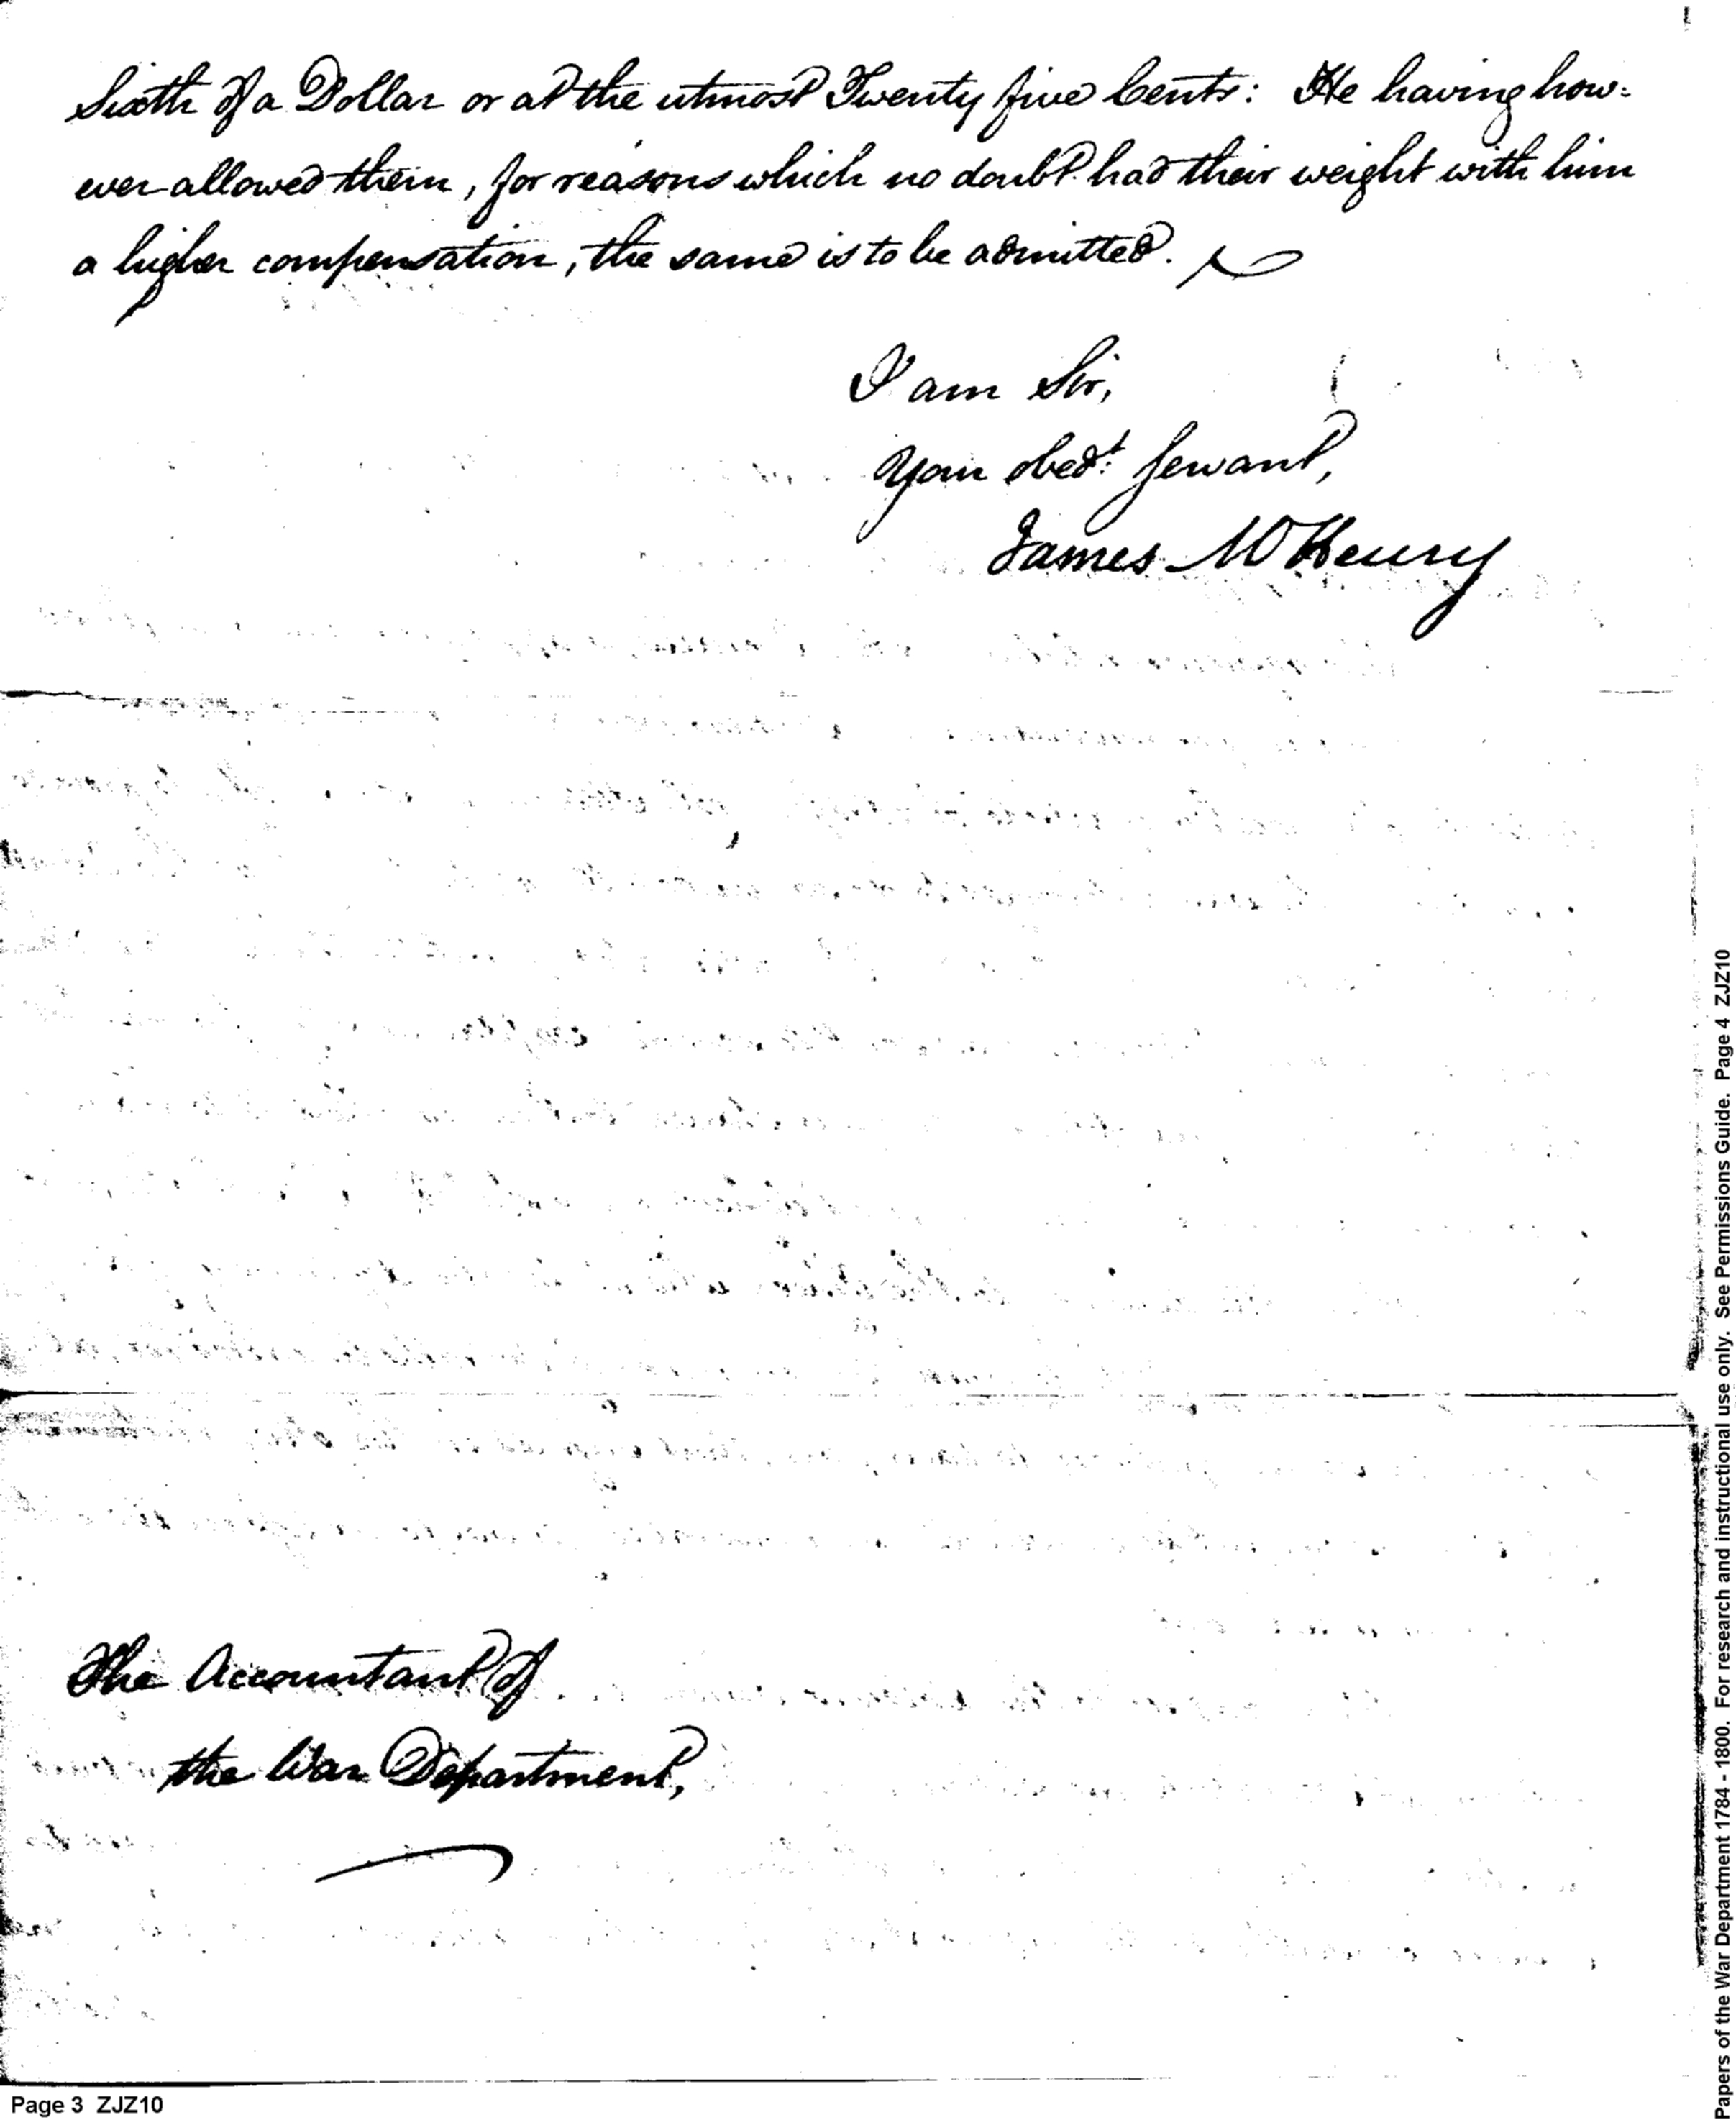 Sixth of a Dollar or at the utmost Twenty five Cents: He having how=
ever allowed them, for reasons which no doubt had their weight with him
a higher compensation, the same is to be admitted.
I am Sir,
Your obedt. Servant,
James McHenry
The Accountant of
the War Department,
Page 3 ZJZ10
Papers of the War Department 1784 - 1800. For research and instructional use only. See Permissions Guide. Page 4 ZJZ10